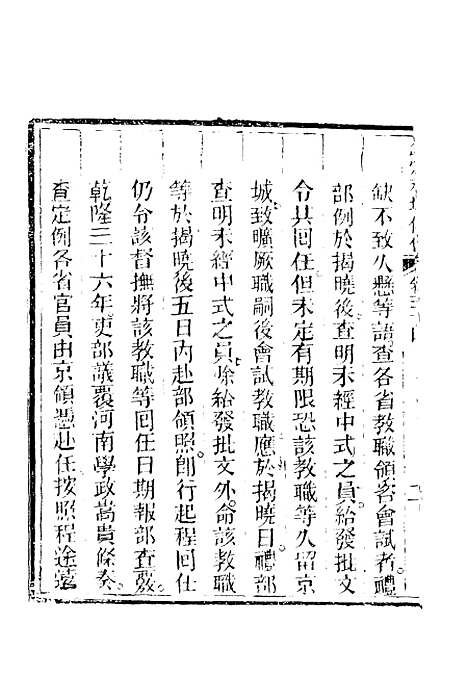 缺不致久懸等語查各省教職領咨會試者禮
部例於揭曉後查明未經中式之員給發批文
令其回任但未定有期限恐該教職等久留京
城致曠厥職嗣後會試教職應於揭曉日禮部
查明未經中式之員除給發批文外命該教職
等於揭曉後五日內赴部領照卽行起程回任
仍令該督撫將該教職等回任日期報部查覈
乾隆三十六年吏部議覆河南學政嵩貴條奏
查定例各省官員由京領憑赴任按照程途遠